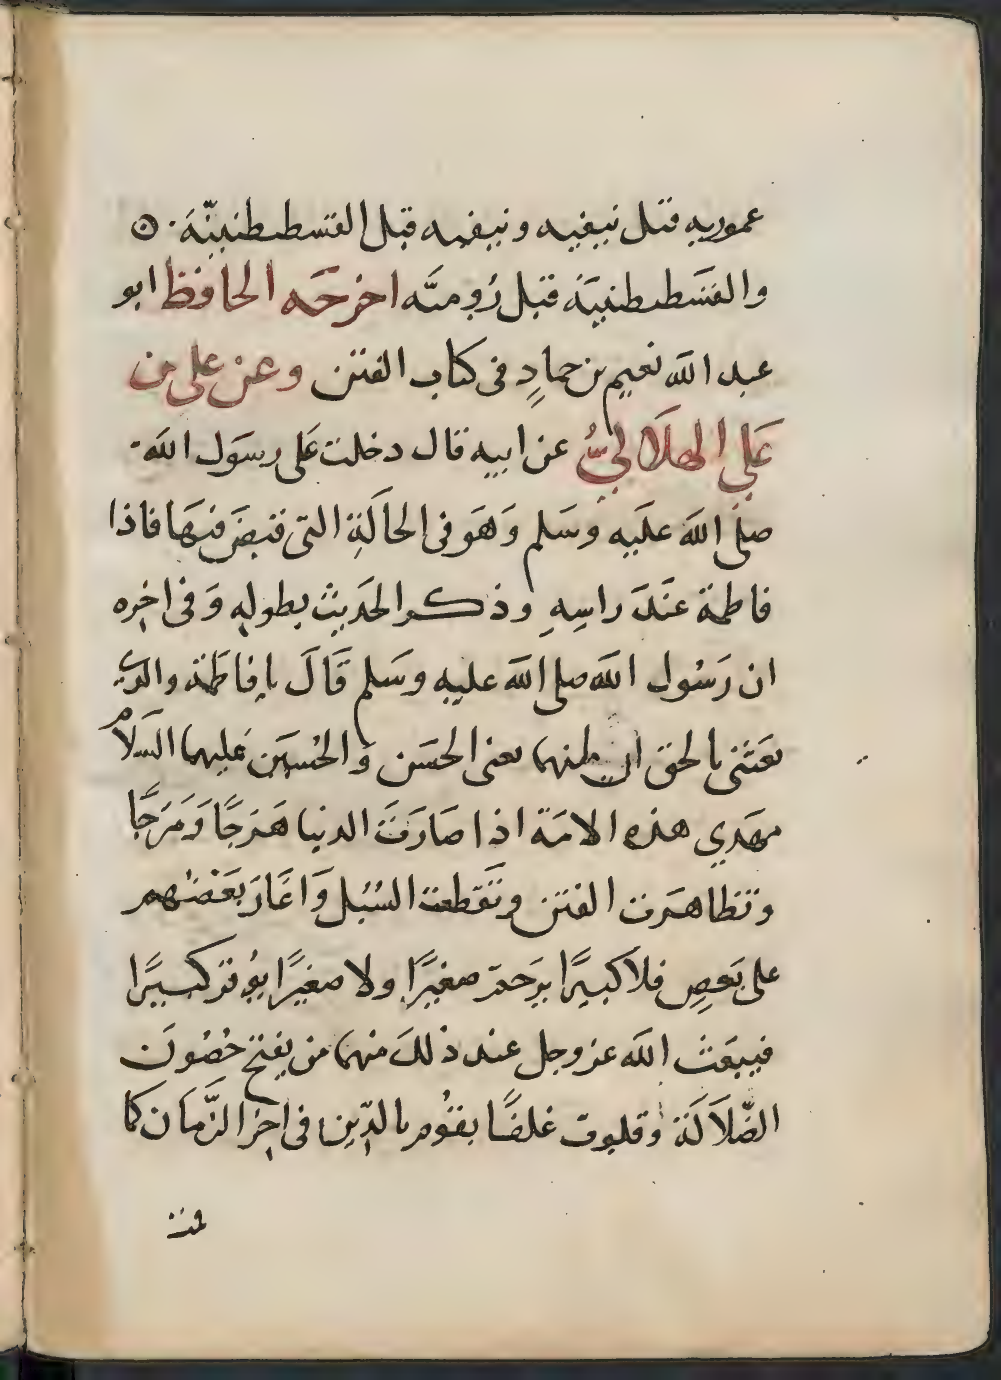 عموريه قبل نيقيه ونيقيه قبل القسطنطينيّة
والقسطنطينية قبل رُوميَّه اخرجَه الحافظ ابو
عبد الله نعيم بن حمادٍ فى كتاب الفتن وعن على بن
عَلي الهلَالىُّ عن ابيه قال دخلت عَلى رسَول الله
صلى الله علَيه وسَلم وَهوَ فى الحالَةِ التى قبضَ فيهَا فاذا
فاطمة عندَ راسِهِ وذكر الحدَيث بطوله وَفى اخره
ان رَسُول الله صلى الله عليه وسَلم قَالَ يا فاطمَة والذى
بعَثَنى بالحق ان منهما يعنى الحسَن وَالحُسيَن عَليهما السَلام
مهدَي هذه الامَة اذا صَارَت الدنيا هَرجًا وَمَرَجًا
وتظاهَرت الفتن وتَقَطعت السُبُل وَاغَارَ بعَضهم
على بعَضٍ فلا كبيرًا يرَحم صغيرًا ولا صغيرًا يوُقر كبيرًا
فيبعَث الله عز وجل عند ذلكَ منهما من يفتح حُصُونَ
الضّلاَلَة وَقلوب غلفًا يقوُم بالدّين فى اخر الزَّمان كما
قمت